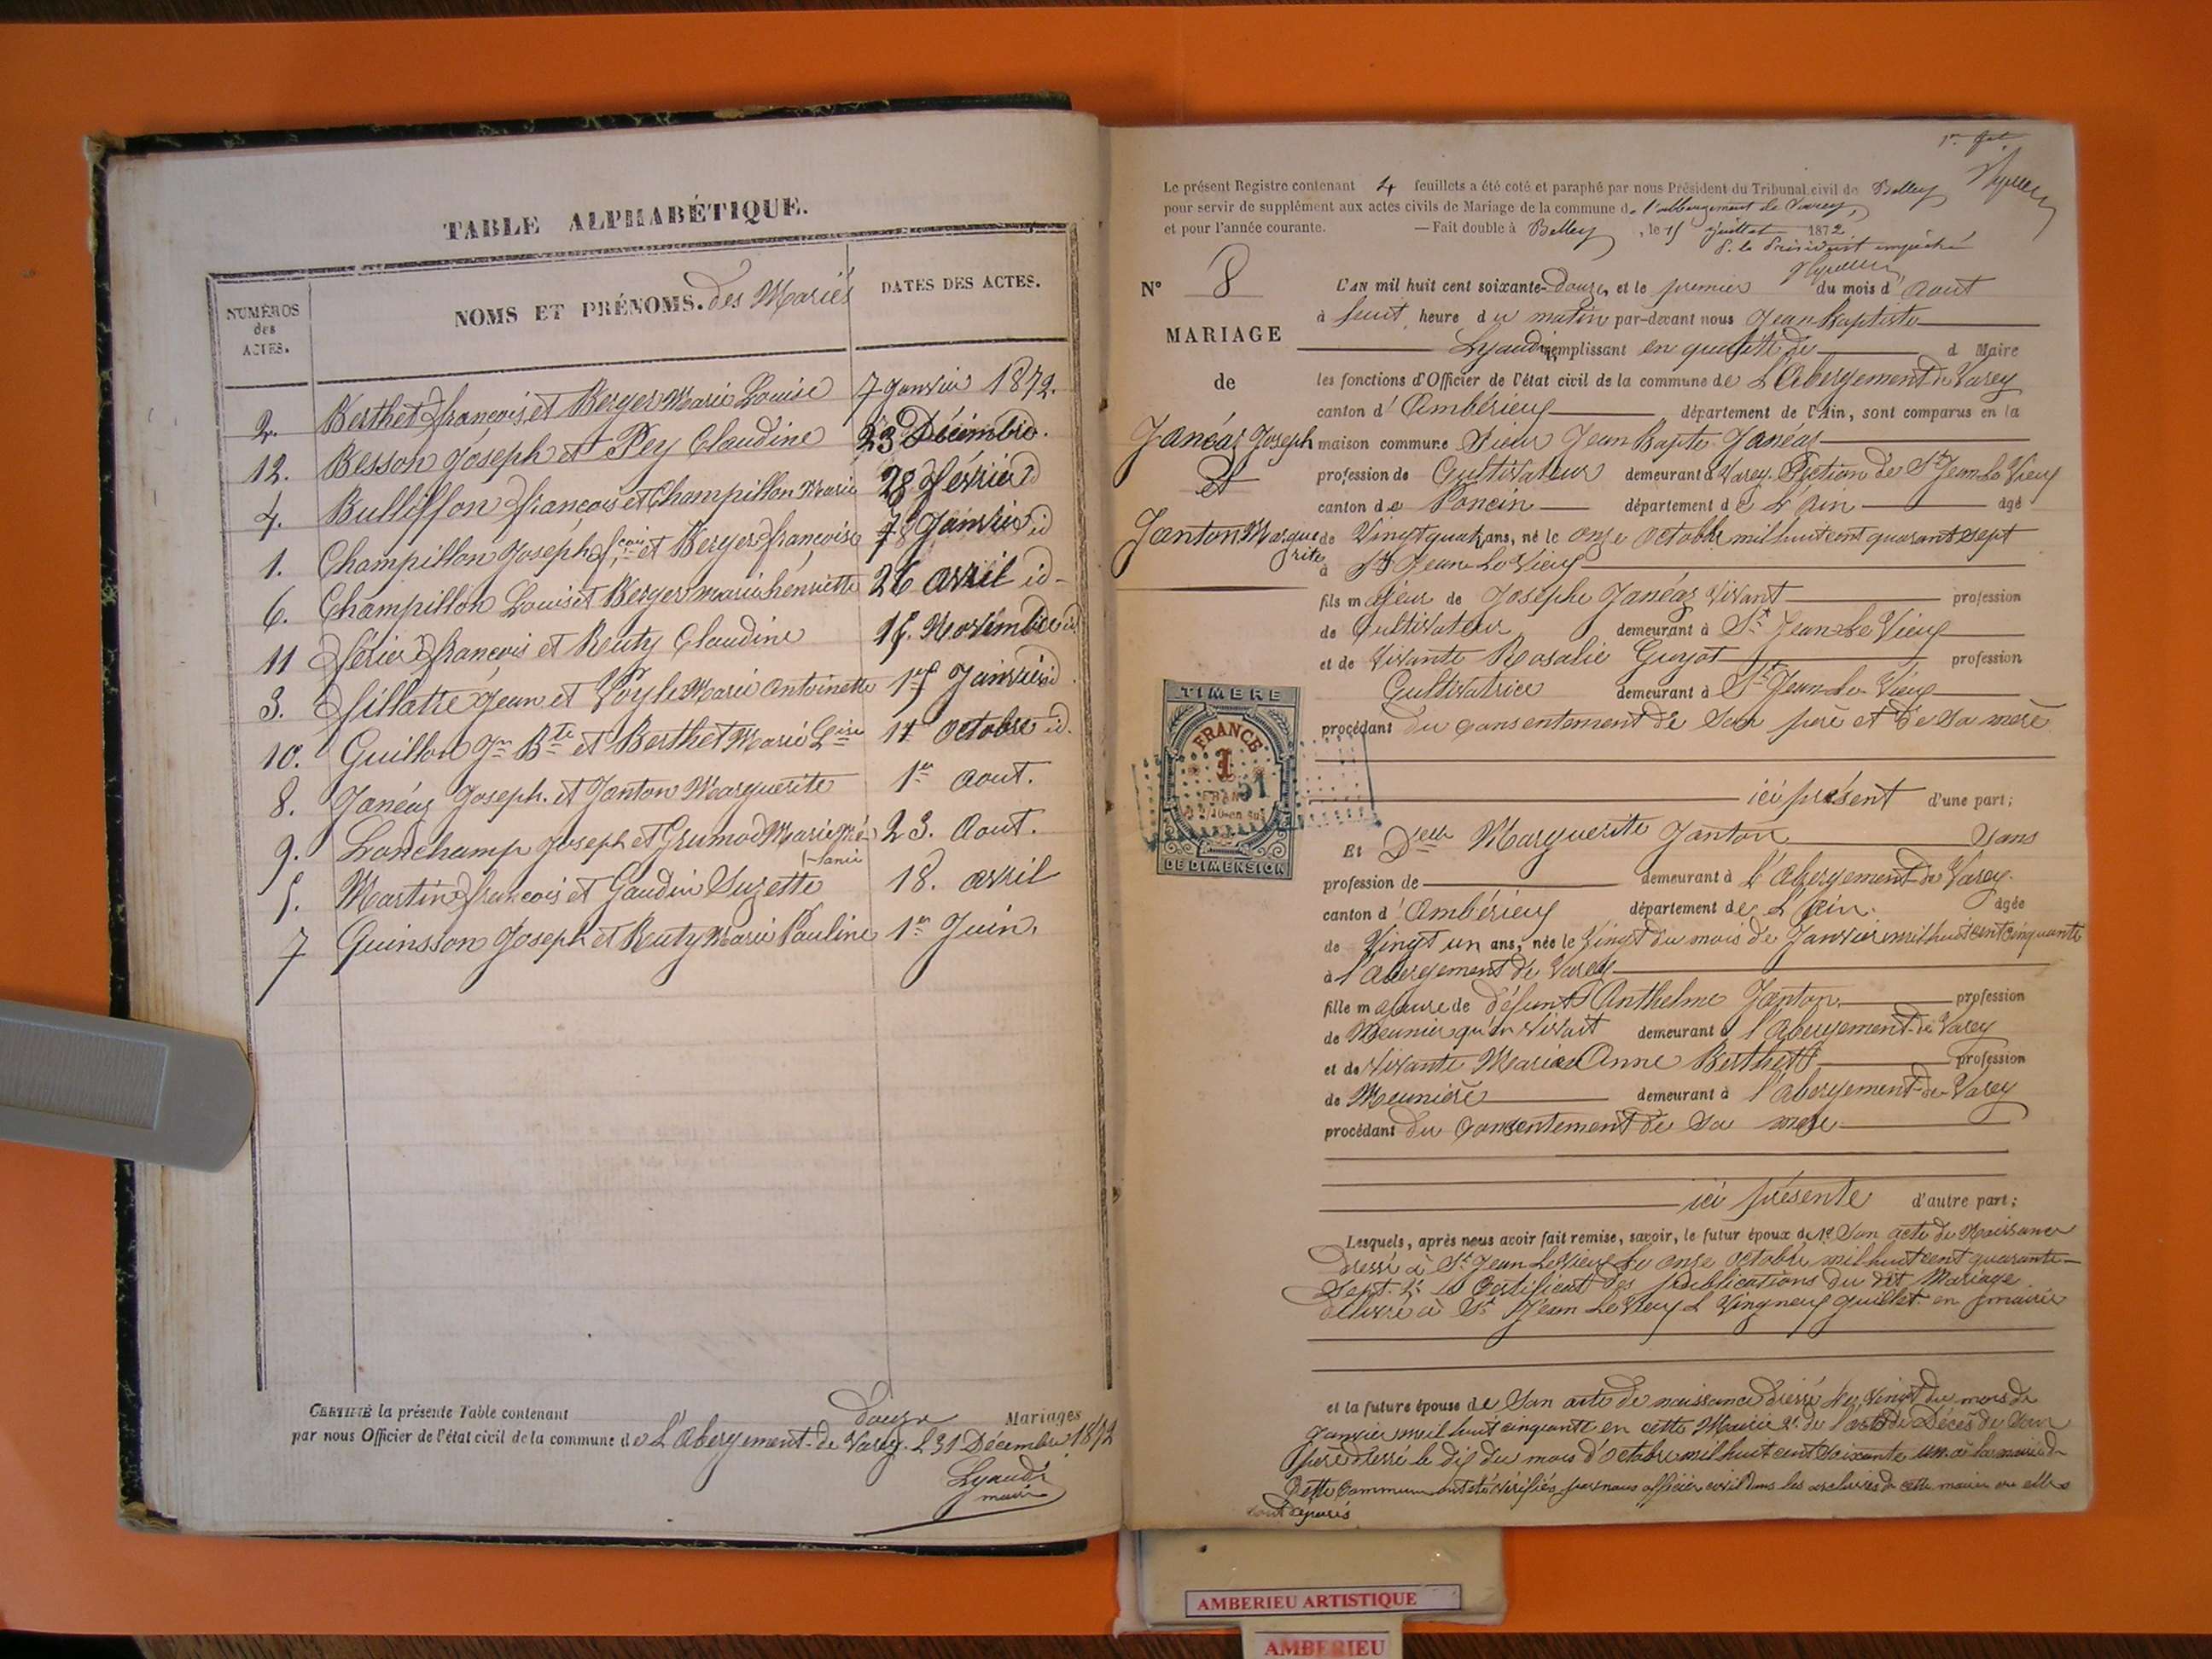 TABLE ALPHABÉTIQUE.
NUMÉROS des ACTES.
NOMS ET PRÉNOMS. des Mariés
DATES DES ACTES.
2. Berthet françois et Berger Marie Louise 7 Janvier 1872.
12. Besson Joseph et Pey Claudine 23 Décembre.
4. Bulliffon françois et Champillon Marie 28 février id
1. Champillon Joseph fcois et Berger françoise Janvier id
6. Champillon Louis et Berger marie henriette 26 avril id
11 férier françois et Reuty Claudine 15. Novembre id
3. fillatre Jean et Marie Antoinette Janvier id
10. Guillon Jn Bte et Berthet Marie Lise 14 Octobre id.
8. Janéaz Joseph et Janton Marguerite 1er Aout.
9. Lonchamp Joseph et Grumod Marie Mé- 23. Aout.
lanie
5. Martin françois et Gaudin Suzette 18. avril
7 Quinsson Joseph et Reuty Marie Pauline 1er Juin.
CERTIFIÉ la présente Table contenant douze Mariages
par nous Officier de l'état civil de la commune de L'Abergement-de-Varey. L 31 Décembre 1872
Lyaudi
maire
1er fet
Le présent Registre contenant 4 feuillets a été coté et paraphé par nous Président du Tribunal civil de Belley
pour servir de supplément aux actes civils de Mariage de la commune de l'abbergement de Varey,
et pour l'année courante. — Fait double à Belley, le 15 Juillet 1872
P. le Président empêché
N° 8
MARIAGE
de
Janéaz Joseph
et
Janton Margue
rite
L'AN mil huit cent soixante-douze, et le premier du mois d'Aout
à huit heure du matin par-devant nous Jean Baptiste
Lyaudi remplissant en qualité de d Maire
les fonctions d'Officier de l'état civil de la commune de L'Abergement de Varey
canton d'Ambérieux département de l'Ain, sont comparus en la
maison commune Sieur Jean Bapte Janéaz
profession de Cultivateur demeurant à Varey. Section de St Jean Le Vieux
canton de Poncin département de L'Ain âgé
de Vingt quatr ans, né le onze Octobre mil huit cent quarant sept
à St Jean Le Vieux
fils majeur de Josephe Janéaz Vivant profession
de Cultivateur demeurant à St Jean Le Vieux
et de Vivante Rosalie Guyot profession
Cultivatrice demeurant à St Jean Le Vieux
procédant du consentement de Son père et de sa mere
ici présent d'une part;
TIMBRE
FRANCE
1
51
DE DIMENSION
Et Delle Marguerite Janton Sans
profession de demeurant à L'Abergement de Varey.
canton d'Ambérieux département de L'Ain. âgée
de Vingt un ans, née le Vingt du mois de Janvier mil huit cent cinquante
à l'Abergement de Varey
fille majeure de défunt Anthelme Janton profession
de Meunier qu'en vivait demeurant à l'Abergement de Varey
et de Vivante Marie Anne Berthet profession
de Meunière demeurant à l'Abergement-de-Varey
procédant du Consentement de Sa mere
ici présente d'autre part;
Lesquels, après nous avoir fait remise, savoir, le futur époux de 1° Son acte de Naissance
dressé à St Jean Le Vieux Le onze octobre mil huit cent quarante-
Sept. 2° le Certificat des publications du dit Mariage
délivré à St Jean Le Vieux L Vingneuf Juillet en mairie
et la future épouse de Son acte de naissance dressé le Vingt du mois de
Janvier mil huit cinquante en cette Mairie 2° de l'acte de Décès de Son
père dressé le dix du mois d'Octobre mil huit cent soixante un à la mairie de
Cette Commune ont été vérifiés par nous officier civil dans les archives de cette mairie ou elles
sont déposés
AMBERIEU ARTISTIQUE
AMBERIEU